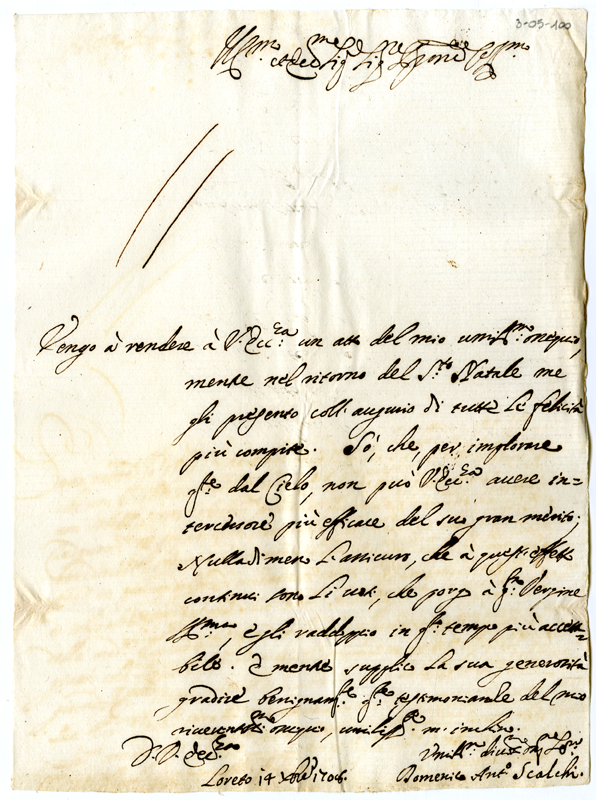 3-05-100
Ill.mo et Ecc.mo Sig.re Sig.re P̃rone Col.mo
Vengo à rendere à V. Ecc.za un atto del mio umiliss.mo ossequio,
mentre nel ritorno del S.to Natale me
gli presento coll'augurio di tutte le felicità
più compite. Sò, che, per implorare
q.te dal Cielo, non può V. Ecc.za avere in=
tercessore più efficace del suo gran merito;
Nulladimeno l'assicuro, che à questi effetti
continui sono li voti, che porgo à q.ta Vergine
SS.ma, e gli raddoppio in q.to tempo più accetta=
bile. e mentre supplico la sua generosità
gradire benignam.te q.te testimonianze del mio
riverentiss.mo ossequio, umiliss.te m'inchino.
D. V. Ecc.za
Loreto 14 Xbre 1706.
Umiliss.mo Divotiss.mo Obl.mo Ser.re
Domenico Ant.o Scalchi.